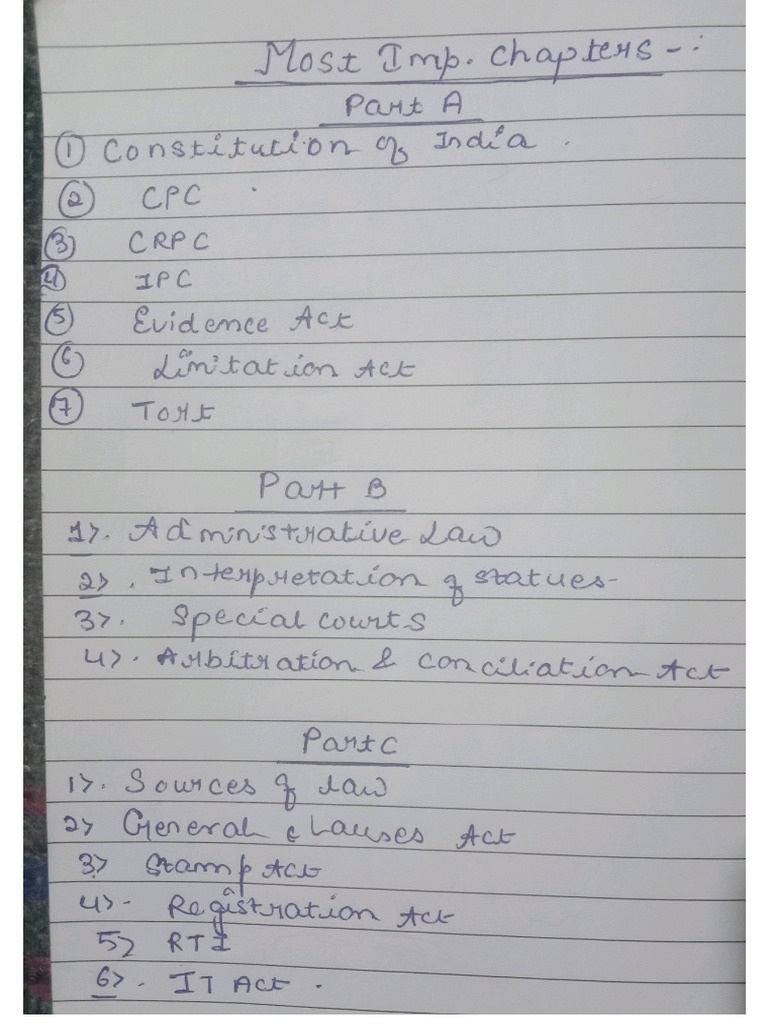 Most Imp. Chapters - :
Part A
① Constitution of India .
② CPC
③ CRPC
④ IPC
⑤ Evidence Act
⑥ Limitation Act
⑦ Tort
Part B
1>. Administrative Law
2>. Interpretation of statues-
3>. Special courts
4>. Arbitration & conciliation Act
Part C
1>. Sources of Law
2> General clauses Act
3> Stamp Act
4>- Registration Act
5> RTI
6>. IT Act .